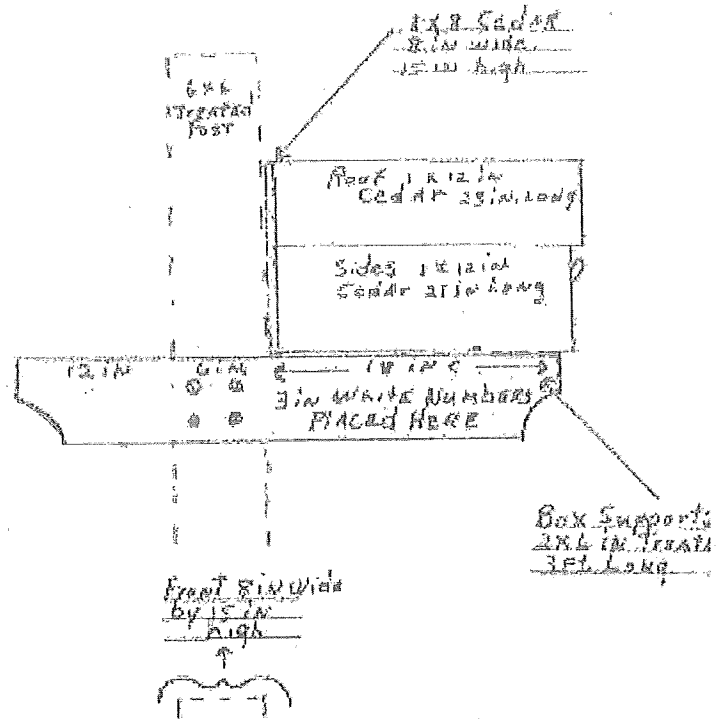 1 X 8 Cedar
8 in wide
15 in high
6 x 6
TREATED
POST
Roof 1 x 12 in
Cedar in. Long
Sides 1 x 12 in
in Long
12 in
6 in
18 in
3 in WHITE NUMBERS
PLACED HERE
Box
3 Ft Long
Front 8 in. Wide
by 15 in
high